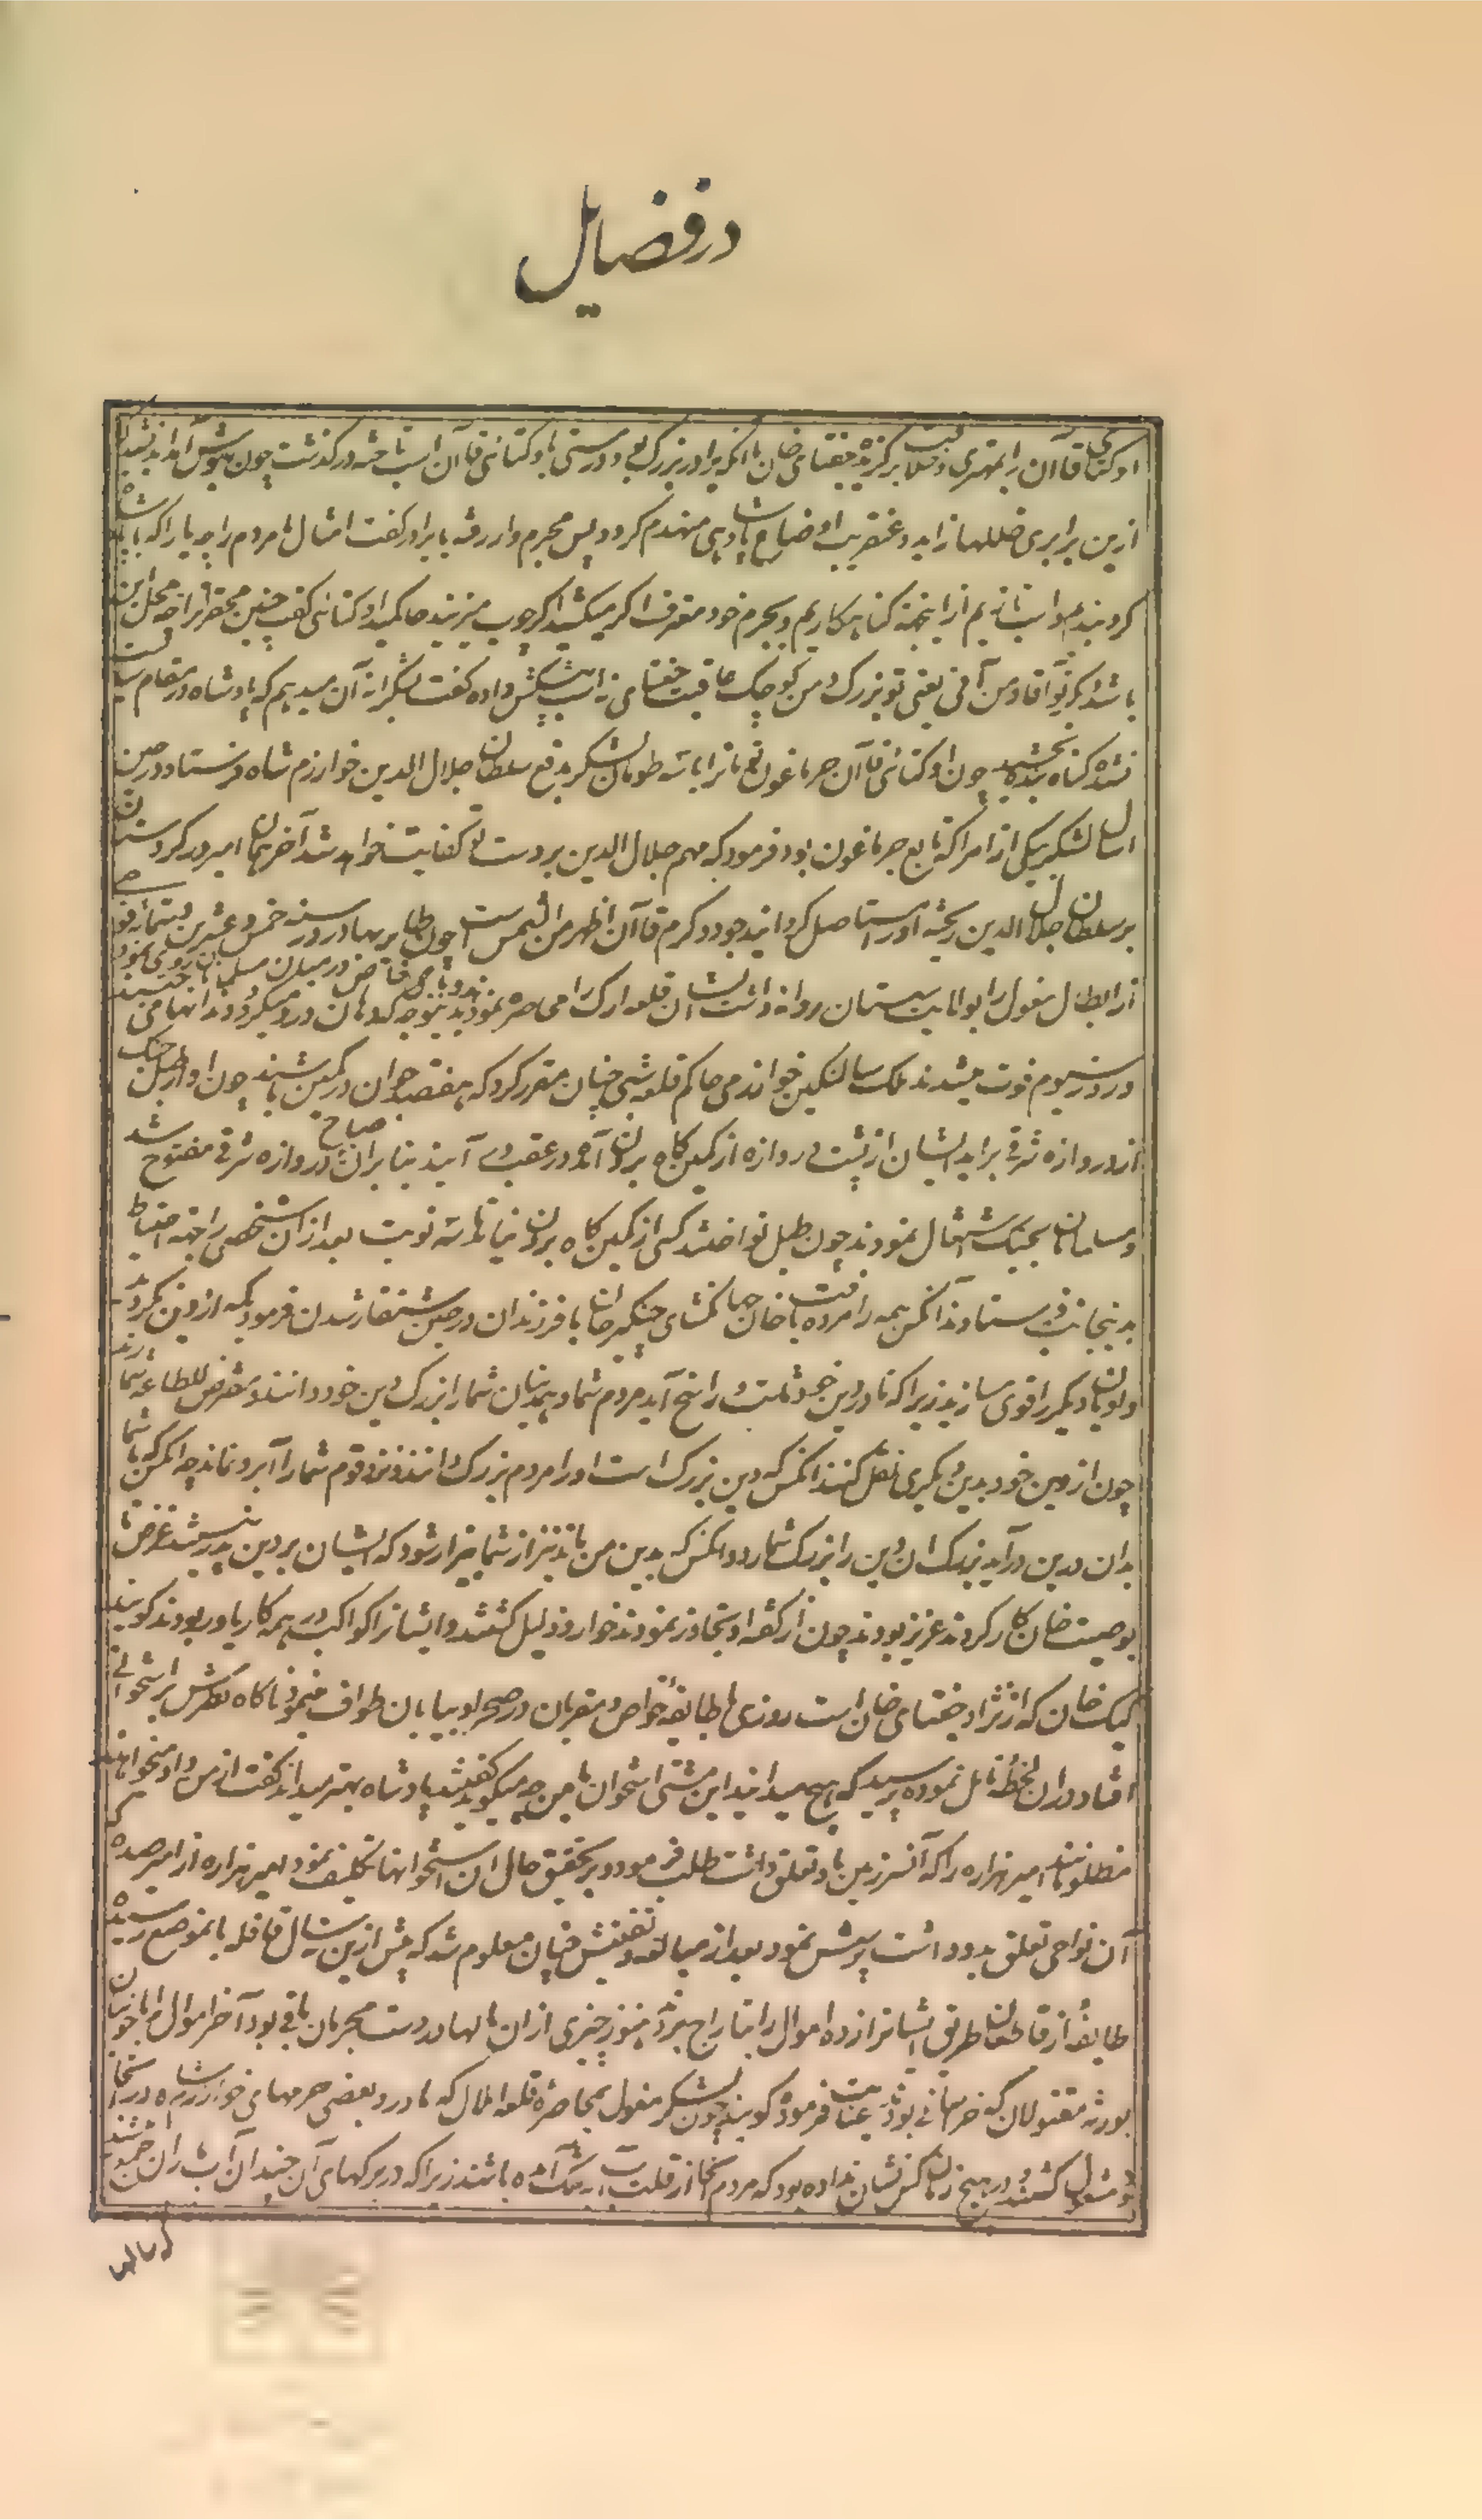 در فضایل
اوکتای قاآن را بمهتری و خلافت برگزید جغتای خان با آنکه برادر بزرگ بود در مستی با اوکتائی قاآن اسب تاخته درگذشت چون بهوش آمد اندیشید که
ازین برابری خللها زاید و عنقریب اوضاع پادشاهی منهدم گردد پس مجرم وار رفته با برادر گفت امثال ما مردم را چه یارا که با پادشاه
گرو بندیم و اسب تازیم از اینجهة گناهکاریم و بجرم خود معترف اگر میکشید اگر چوب میزنید حاکمید اوکتائی گفت چنین محقر را چه محل این
باشد که تو آقا و من آنی یعنی تو بزرگ و من کوچک عاقبت جغتای نه اسب پیشکش داده گفت بشکرانه آن میدهم که پادشاه در مقام سیاست
نشده گناه بنده بخشید چون اوکتائی قاآن جرماغون را با سه طومان لشکر بدفع سلطان جلال الدین خوارزم شاه فرستاد در حین
ارسال لشکر یکی از امرا که تابع جرماغون بود فرمود که مهم جلال الدین بر دست تو کفایت خواهد شد آخر همان امیر در کردستان
بر سلطان جلال الدین ریخته او را مستاصل گردانید جود و کرم قاآن اظهر من الشمس است چون طایر بهادر در سنه خمس و عشرین و ستمائه فوجی
از ابطال مغول را بولایت سیستان روانه داشت ایشان قلعه ارک را محاصره نمودند
در روز سیوم فوت میشدند ملک سالنگین خواندمی حاکم قلعه شبی چنان مقرر کرد که هفتصد جوان در کمین باشند چون آواز طبل جنگ
از دروازه شرقی براید ایشان از پشت دروازه از کمین گاه برون آمده در عقب وی آیند بنا بران صباح دروازه شرقی مفتوح شد
و مسلمانان بجنک اشتغال نمودند چون طبل نواختند کسی از کمین گاه برون نیامد تا سه نوبت بعد از آن شخصی را جهة احتیاط
بدینجانب فرستادند آنکس همه را مرده یافت خان جهانگشای چنگیز خان با فرزندان در حین شنقار شدن فرمود که از دین نگردید
و ادیان دیگر را قوی سازید زیرا که تا در دین خود ثابت و راسخ آید مردم شما و همدینان شما را بزرگ دین خود دانند و مفترض للطاعه شمارند
چون از دین خود بدین دیگری نقل کنند آنکس که دین بزرگ است او را مردم بزرگ دانند و نزد قوم شما را آبرو نماند چه آنکس که با شما
بدان دین درآید بزرگ آن دین را بزرگ شمارد و آنکس که بدین من باند نیز از شما بیزار شود که ایشان بر دین پدر نیستند غرض تا
بوصیت خان کار کردند عزیز بودند چون از گفته او تجاوز نمودند خوار و ذلیل گشتند و ایشانرا کواکب در همه کار یاور بودند گویند
کبک خان که از نژاد جغتای خان است روزی با طایفه خواص و مقربان در صحرا و بیابان طواف مینمود ناگاه نظرش بر استخوانی
افتاد در ان لحظه تامل نموده پرسید که هیچ میدانید این مشتی استخوان با من چه میگوید گفتند پادشاه بهتر میداند گفت از من داد میخواهند که
مظلومانند امیر هزاره را که آنسرزمین باو تعلق داشت طلب فرمود و بر تحقیق حال آن استخوانها تکلیف نمود امیر هزاره از امیر صده که
آن نواحی تعلق بدو داشت پرسش نمود بعد از مبالغه و تفتیش چنان معلوم شد که پیش ازین سال قافله بانموضع رسیده
طایفه از قاطعان طریق ایشانرا زده اموال را بتاراج برده هنوز چیزی ازان مالها در دست مجرمان باقی بود آخر اموال را با خونیان
بورثه مقتولان که خراسانی بودند عنایت فرمود گویند چون لشکر مغول بمحاصره قلعه ایلال که مادر و بعضی حرمهای خوارزمشاه در آنجا
بودند مشغول گشتند در هیچ زمان کس نشان نداده بود که مردم آنجا از قلت آب به تنگ آمده باشند زیرا که در برکهای آن چندان آب باران جمع